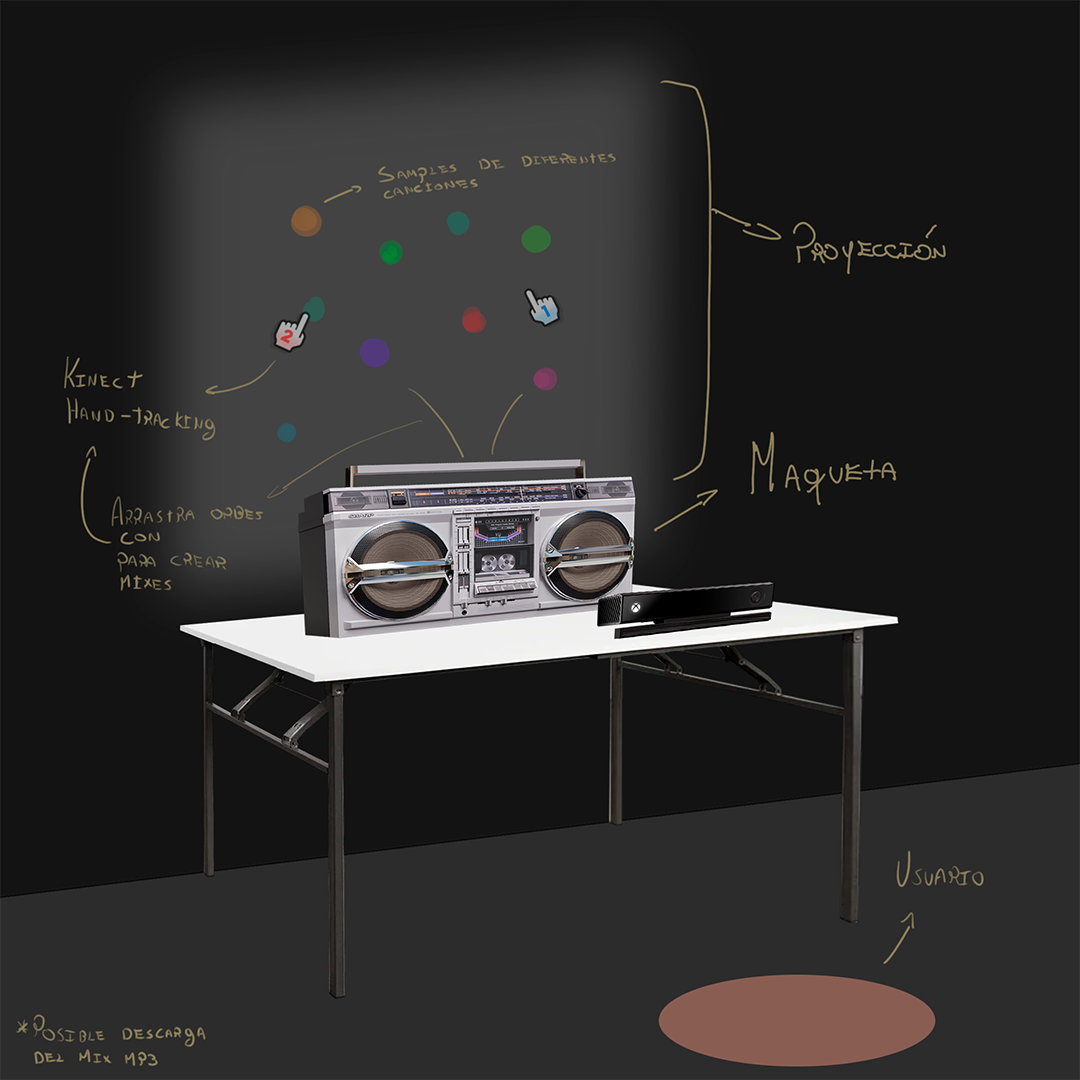 SAMPLES DE DIFERENTES
CANCIONES
PROYECCIÓN
2
1
KINECT
HAND-TRACKING
MAQUETA
ARRASTRA ORBES
CON
PARA CREAR
MIXES
SHARP
USUARIO
*POSIBLE DESCARGA
DEL MIX MP3